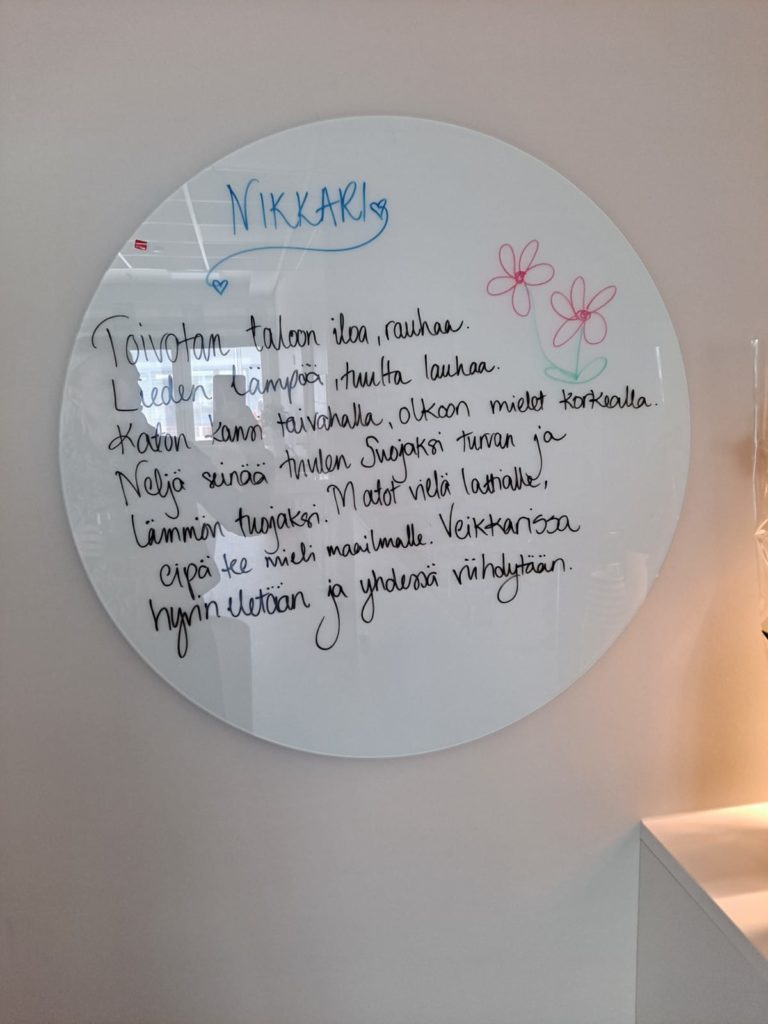 NIKKARI
Toivotan taloon iloa, rauhaa.
Lieden lämpöä, tuulta lauhaa.
Katon kansi taivahalla, olkoon mielet korkealla.
Neljä seinää tuulen Suojaksi turvan ja
lämmön tuojaksi. Matot vielä lattialle,
eipä tee mieli maailmalle. Veikkarissa
hyvin eletään ja yhdessä viihdytään.